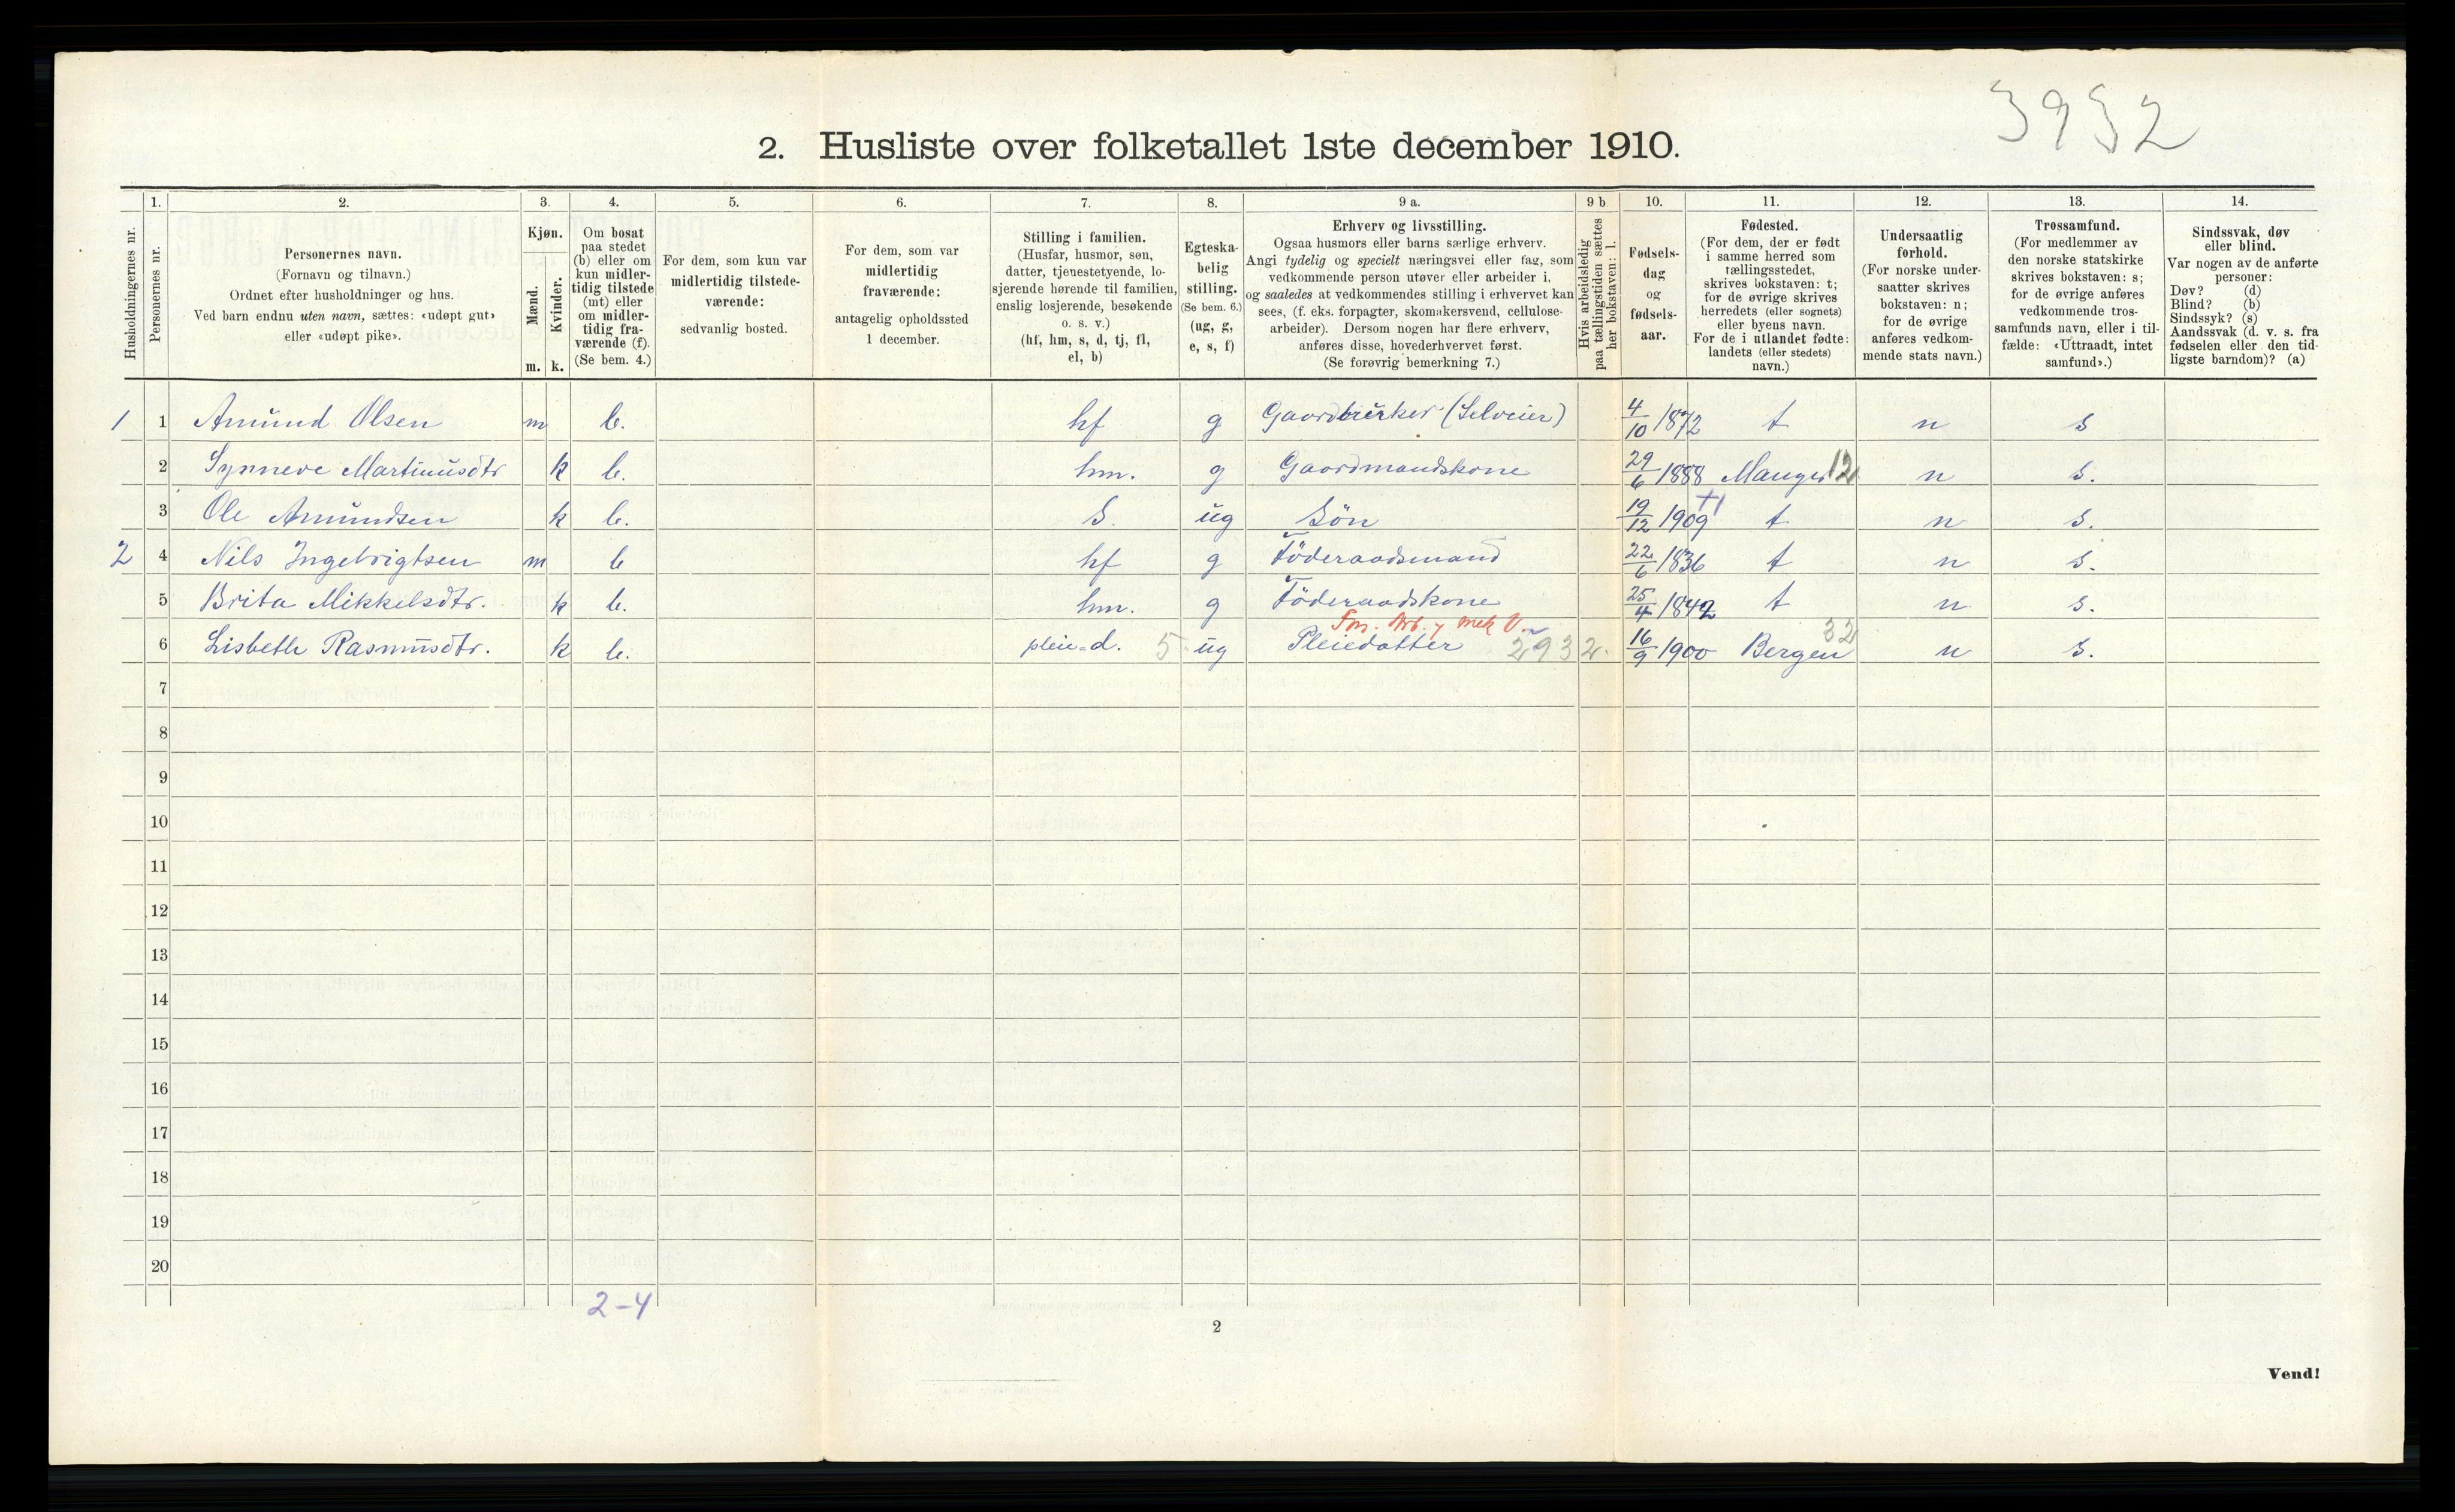 3932
2. Husliste over folketallet 1ste december 1910.
Husholdningernes nr.
1.
Personernes nr.
2.
Personernes navn.
(Fornavn og tilnavn.)
Ordnet efter husholdninger og hus.
Ved barn endnu uten navn, sættes: «udøpt gut»
eller «udøpt pike».
3.
Kjøn.
Mænd.
Kvinder.
m. k.
4.
Om bosat
paa stedet
(b) eller om
kun midler-
tidig tilstede
(mt) eller
om midler-
tidig fra-
værende (f).
(Se bem. 4.)
5.
For dem, som kun var
midlertidig tilstede-
værende:
sedvanlig bosted.
6.
For dem, som var
midlertidig
fraværende:
antagelig opholdssted
1 december.
7.
Stilling i familien.
(Husfar, husmor, søn,
datter, tjenestetyende, lo-
sjerende hørende til familien,
enslig losjerende, besøkende
o. s. v.)
(hf, hm, s, d, tj, fl,
el, b)
8.
Egteska-
belig
stilling.
(Se bem. 6.)
(ug, g,
e, s, f)
9 a.
Erhverv og livsstilling.
Ogsaa husmors eller barns særlige erhverv.
Angi tydelig og specielt næringsvei eller fag, som
vedkommende person utøver eller arbeider i,
og saaledes at vedkommendes stilling i erhvervet kan
sees, (f. eks. forpagter, skomakersvend, cellulose-
arbeider). Dersom nogen har flere erhverv,
anføres disse, hovederhvervet først.
(Se forøvrig bemerkning 7.)
9 b
Hvis arbeidsledig
paa tællingstiden sættes
her bokstaven: l.
10.
Fødsels-
dag
og
fødsels-
aar.
11.
Fødested.
(For dem, der er født
i samme herred som
tællingsstedet,
skrives bokstaven: t;
for de øvrige skrives
herredets (eller sognets)
eller byens navn.
For de i utlandet fødte:
landets (eller stedets)
navn.)
12.
Undersaatlig
forhold.
(For norske under-
saatter skrives
bokstaven: n;
for de øvrige
anføres vedkom-
mende stats navn.)
13.
Trossamfund.
(For medlemmer av
den norske statskirke
skrives bokstaven: s;
for de øvrige anføres
vedkommende tros-
samfunds navn, eller i til-
fælde: «Uttraadt, intet
samfund».)
14.
Sindssvak, døv
eller blind.
Var nogen av de anførte
personer:
Døv? (d)
Blind? (b)
Sindssyk? (s)
Aandssvak (d. v. s. fra
fødselen eller den tid-
ligste barndom)? (a)
1 1 Amund Olsen m b. hf g Gaardbruker (Selveier) 4/10 1872 t n s
2 Synneve Martinusdtr k b. hm. g Gaardmandskone 29/6 1888 Manger 12 n s.
3 Ole Amundsen k b. S. ug Sön 19/12 1909 t n s.
2 4 Nils Ingebrigtsen m b hf g Föderaadsmand 22/6 1836 t n s.
5 Brita Mikkelsdtr. k b. hm. g Föderaadskone 25/4 1842 t n s.
6 Lisbeth Rasmusdtr. k b. pleie=d. 5 ug Pleiedatter 2932. 16/9 1900 Bergen 32 n s.
7
8
9
10
11
12
13
14
15
16
17
18
19
20
2-4
2
Vend!